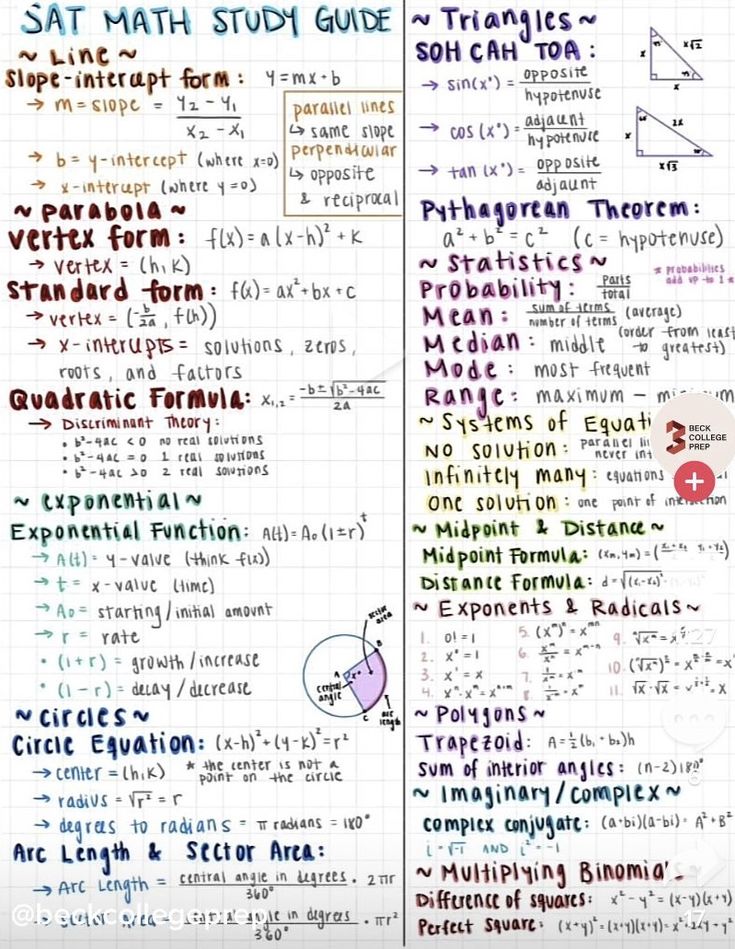 SAT MATH STUDY GUIDE
~ Line ~
Slope-intercept form: y=mx+b
→ m = slope = y₂ - y₁ / x₂ - x₁
→ b = y-intercept (where x=0)
→ x-intercept (where y=0)
parallel lines
↳ same slope
perpendicular
↳ opposite
& reciprocal
~ Parabola ~
Vertex form: f(x) = a(x-h)² + K
→ vertex = (h,K)
Standard form: f(x) = ax² + bx + c
→ vertex = (-b/2a, f(h))
→ x-intercepts = solutions, zeros,
roots, and factors
Quadratic Formula: x₁,₂ = -b ± √b²-4ac / 2a
→ Discriminant Theory:
• b²-4ac < 0 no real solutions
• b²-4ac = 0 1 real solutions
• b²-4ac > 0 2 real solutions
~ Exponential ~
Exponential Function: A(t) = A₀(1±r)ᵗ
→ A(t) = y-value (think f(x))
→ t = x-value (time)
→ A₀ = starting/initial amount
→ r = rate
• (1+r) = growth/increase
• (1-r) = decay/decrease
sector area
A
B
C
x°
central angle
arc length
~ Circles ~
Circle Equation: (x-h)² + (y-K)² = r²
→ center = (h,K) * the center is not a
point on the circle
→ radius = √r² = r
→ degrees to radians = π radians = 180°
Arc Length & Sector Area:
→ Arc Length = central angle in degrees / 360° • 2πr
→ Sector Area = central angle in degrees / 360° • πr²
@beckcollegeprep
~ Triangles ~
SOH CAH TOA:
→ sin(x°) = opposite / hypotenuse
→ cos(x°) = adjacent / hypotenuse
→ tan(x°) = opposite / adjacent
x
x
x√2
x
2x
x√3
Pythagorean Theorem:
a² + b² = c² (c = hypotenuse)
~ Statistics ~
* probabilities
add up to 1 *
Probability: Parts / total
Mean: sum of terms / number of terms (average)
Median: middle (order from least
to greatest)
Mode: most frequent
Range: maximum -
~ Systems of
No solution: parallel
never
Infinitely many: equations
One solution: one point of intersection
BECK
COLLEGE
PREP
~ Midpoint & Distance ~
Midpoint Formula: (xm, ym) =
Distance Formula: d =
~ Exponents & Radicals ~
1. 0! = 1
2. x⁰ = 1
3. x¹ = x
4. xⁿ · xᵐ = xⁿ⁺ᵐ
5. (xᵐ)ⁿ = xᵐⁿ
6.
7.
8.
9.
10.
11. √x · √x =
~ Polygons ~
Trapezoid: A = ½(b₁ + b₂)h
Sum of interior angles: (n-2)180°
~ Imaginary/Complex ~
Complex conjugate: (a+bi)(a-bi) = A² + B²
i = √-1 AND i² = -1
~ Multiplying
Difference of squares: x² - y² = (x-y)(x+y)
Perfect Square: (x+y)² = (x+y)(x+y) = x²